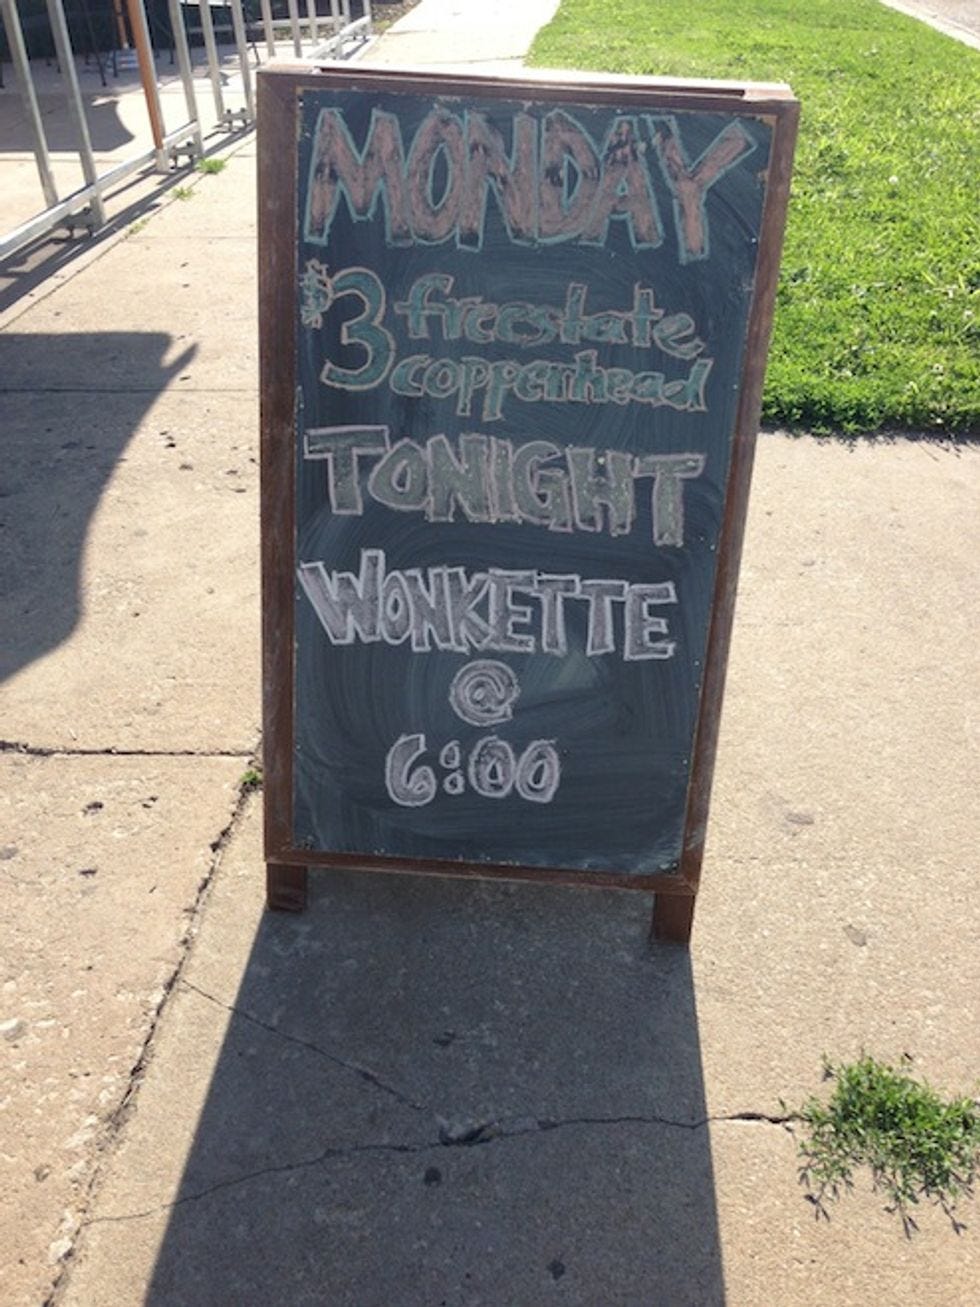 MONDAY
$3 freestate
copperhead
TONIGHT
WONKETTE
@
6:00